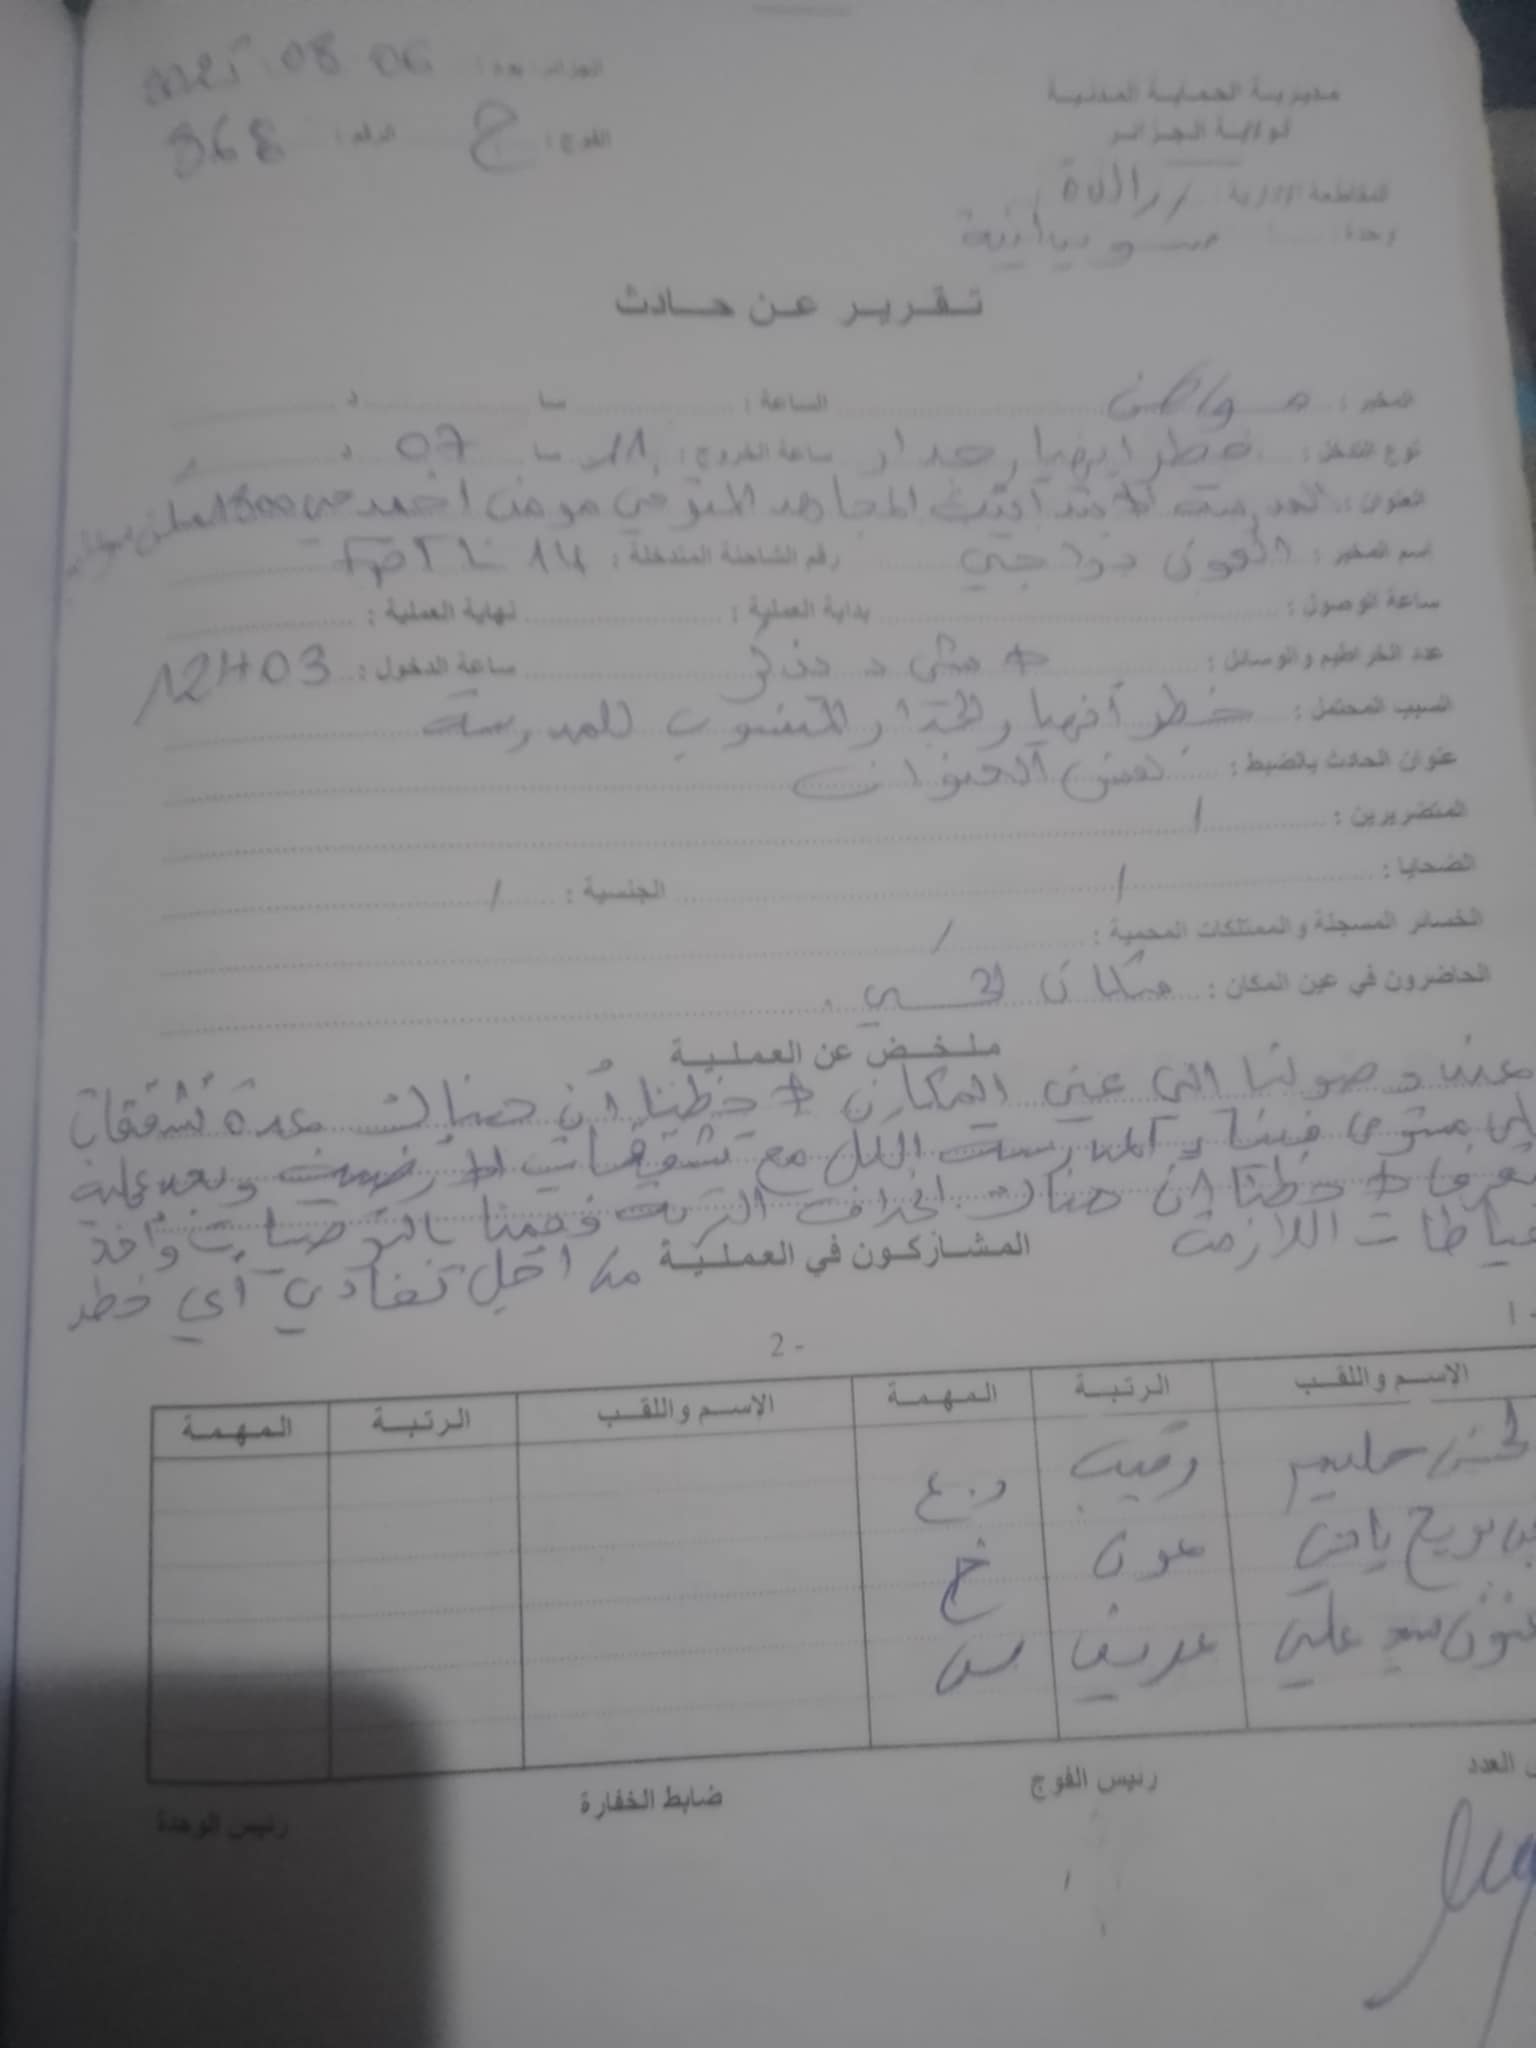 مديرية الحماية المدنية
لولاية الجزائر
المقاطعة الإدارية : زرالدة
وحدة : سويدانية
الجزائر، يوم : 06 08 2025
الفوج : ج الرقم : 968
تقرير عن حادث
المخبر : مواطن الساعة : سا د
نوع التدخل : خطر انهيار جدار ساعة الخروج : 11 سا 07 د
العنوان : المدرسة الابتدائية المجاهد المتوفي أحمد حي 1800 مسكن
اسم المخبر : العون دواجي رقم الشاحنة المتدخلة : 14
ساعة الوصول : بداية العملية : نهاية العملية :
عدد الخراطيم والوسائل : لا شيء ساعة الدخول : 12H03
السبب المحتمل : خطر انهيار الجدار للمدرسة
عنوان الحادث بالضبط : نفس العنوان
المتضررين : /
الضحايا : / الجنسية : /
الخسائر المسجلة والممتلكات المحمية : /
الحاضرون في عين المكان : سكان الحي .
ملخص عن العملية
عند وصولنا الى عين المكان لاحظنا أن هناك عدة تشققات
على مستوى فناء المدرسة مع تشققات الأرضية وبعد عملية
لاحظنا أن هناك انجراف التربة وقمنا بالتوصيات وأخذ
اللازمة من أجل تفادي أي خطر
المشاركون في العملية
1 -
2 -
الاسم واللقب الرتبة المهمة الاسم واللقب الرتبة المهمة
حليم رقيب ر.ع
عون خ
علي عريف س
العدد رئيس الفوج ضابط الخفارة رئيس الوحدة